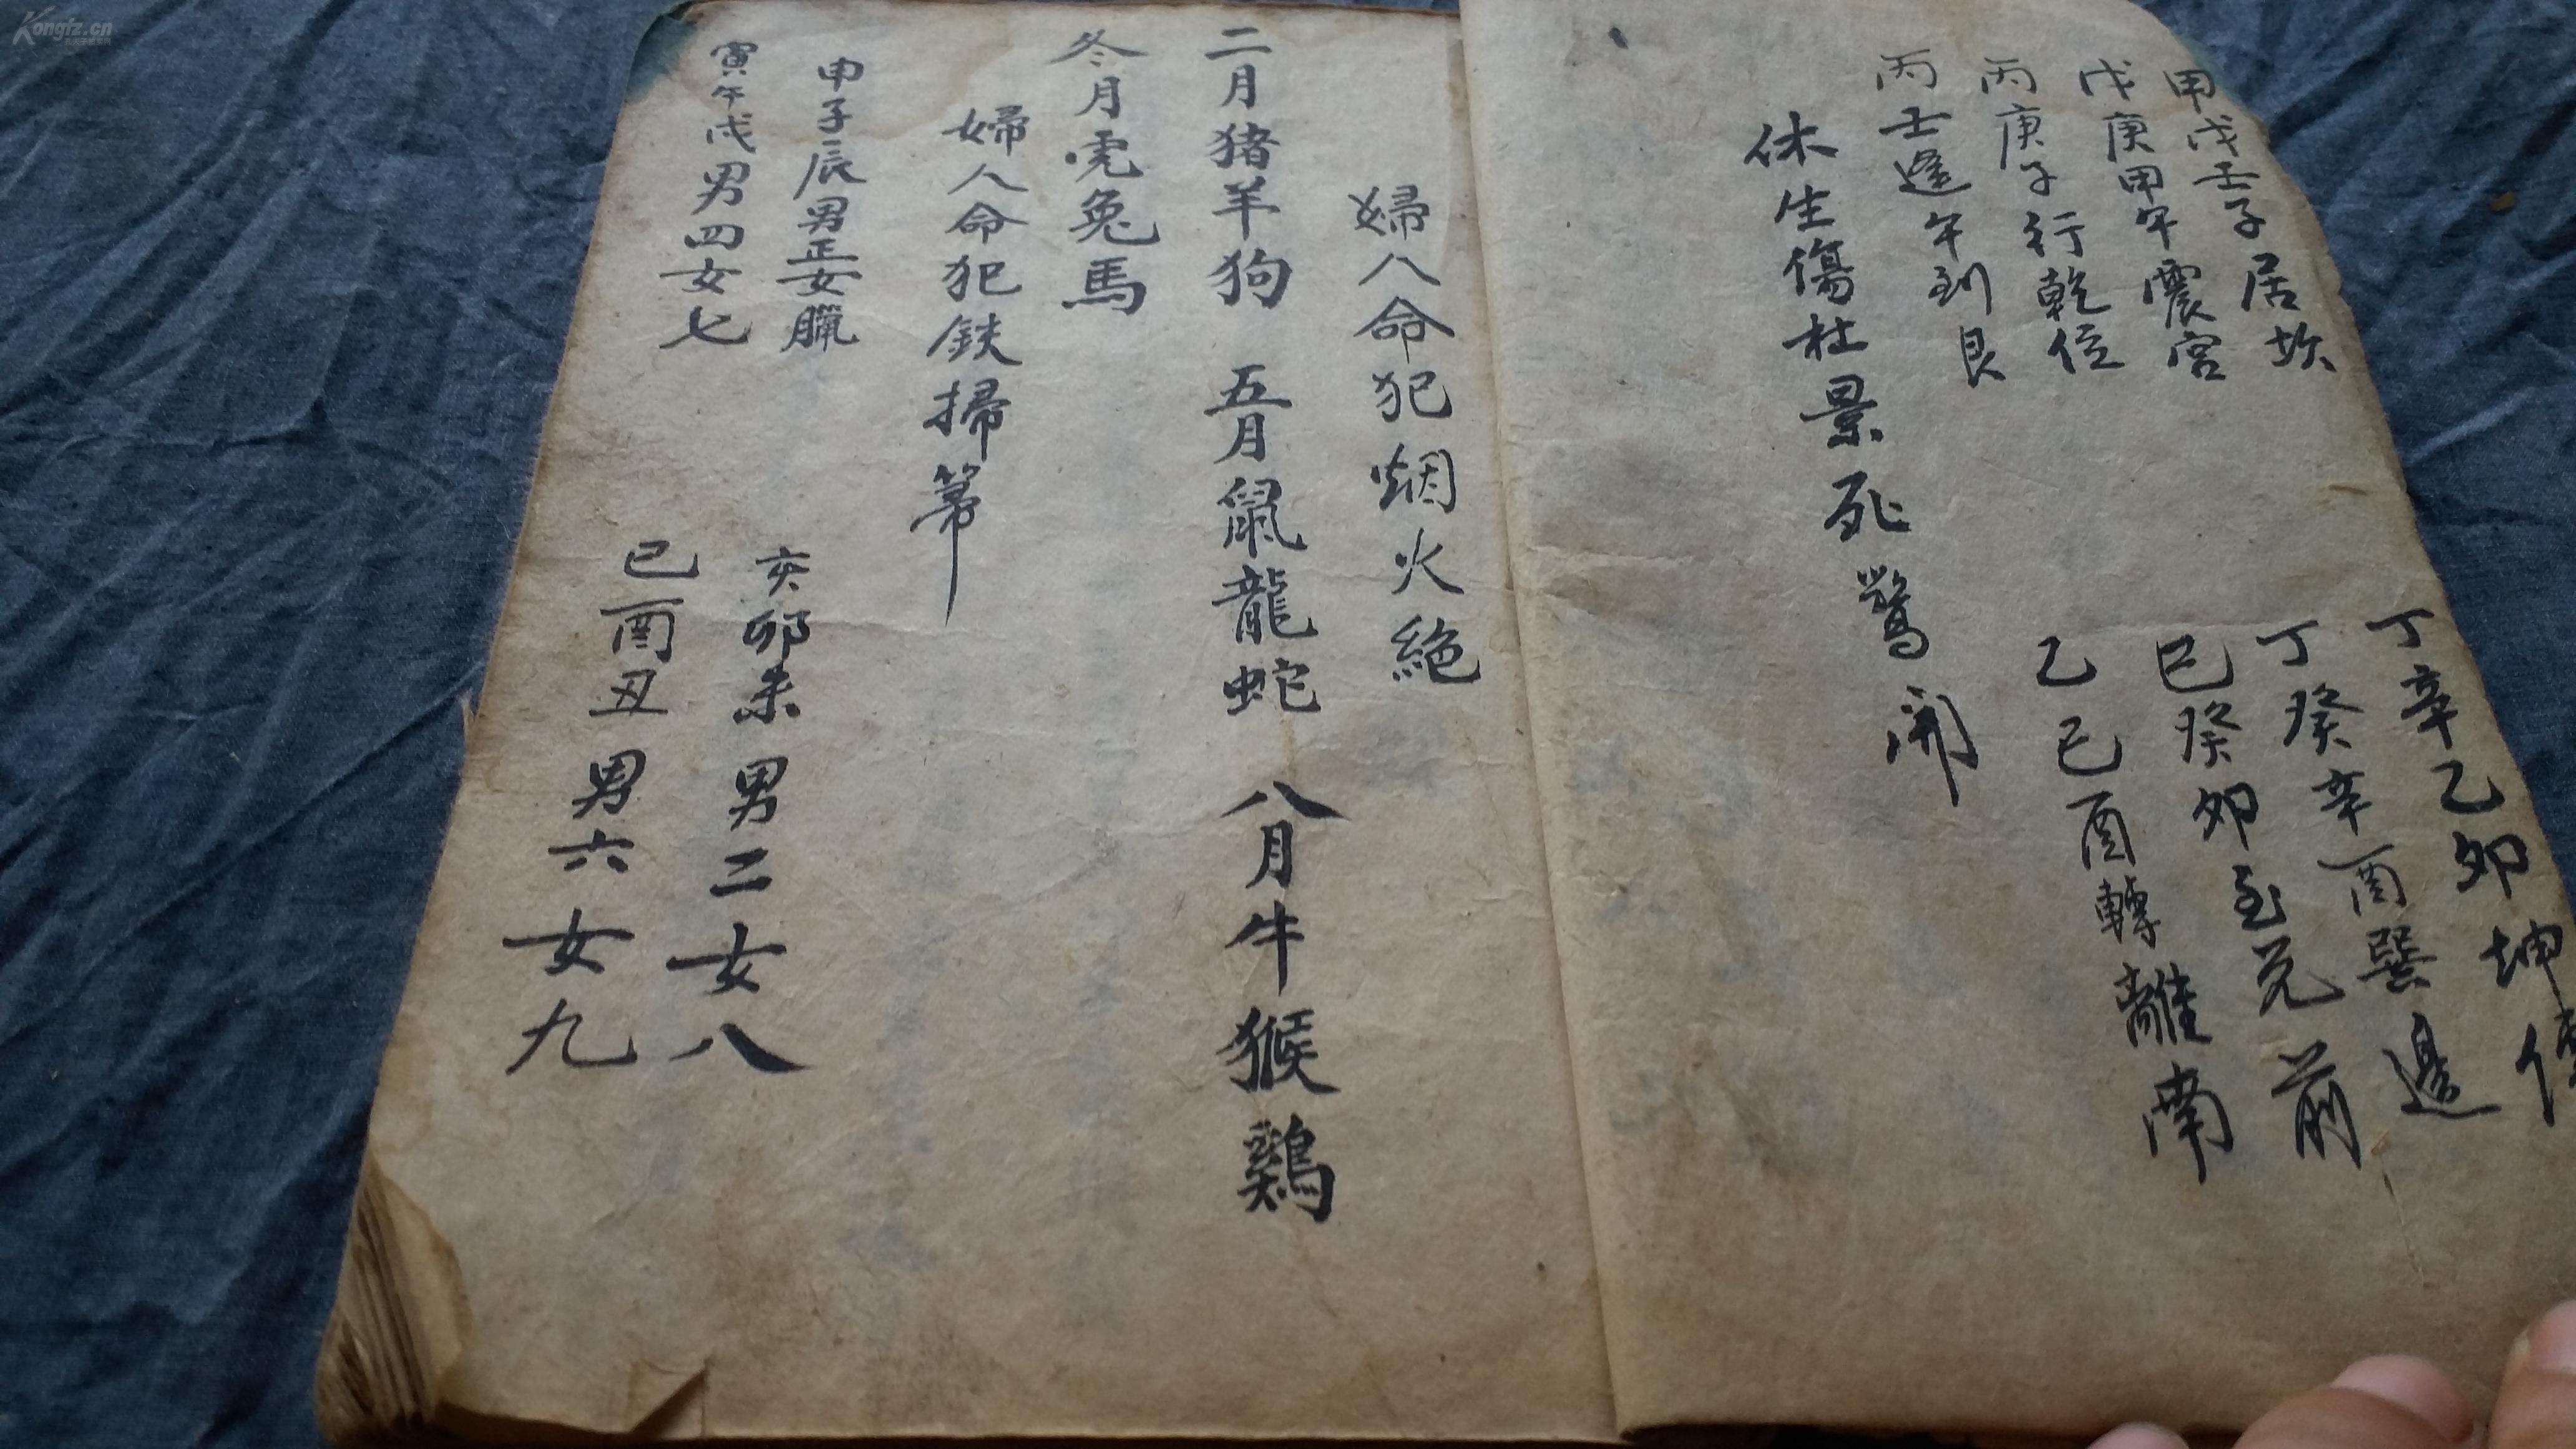 甲戊壬子居坎
丁辛乙卯坤
戊庚甲午震宮
丁癸辛酉巽邊
丙庚子行乾位
巳癸卯至兑前
丙壬逢午到艮
乙巳酉轉離南
休生傷杜景死驚開
婦人命犯烟火絶
二月猪羊狗 五月鼠龍蛇 八月牛猴鷄
冬月虎兔馬
婦人命犯鉄掃箒
申子辰男正女臘
亥卯未男二女八
寅午戌男四女七
巳酉丑男六女九
Kongfz.cn